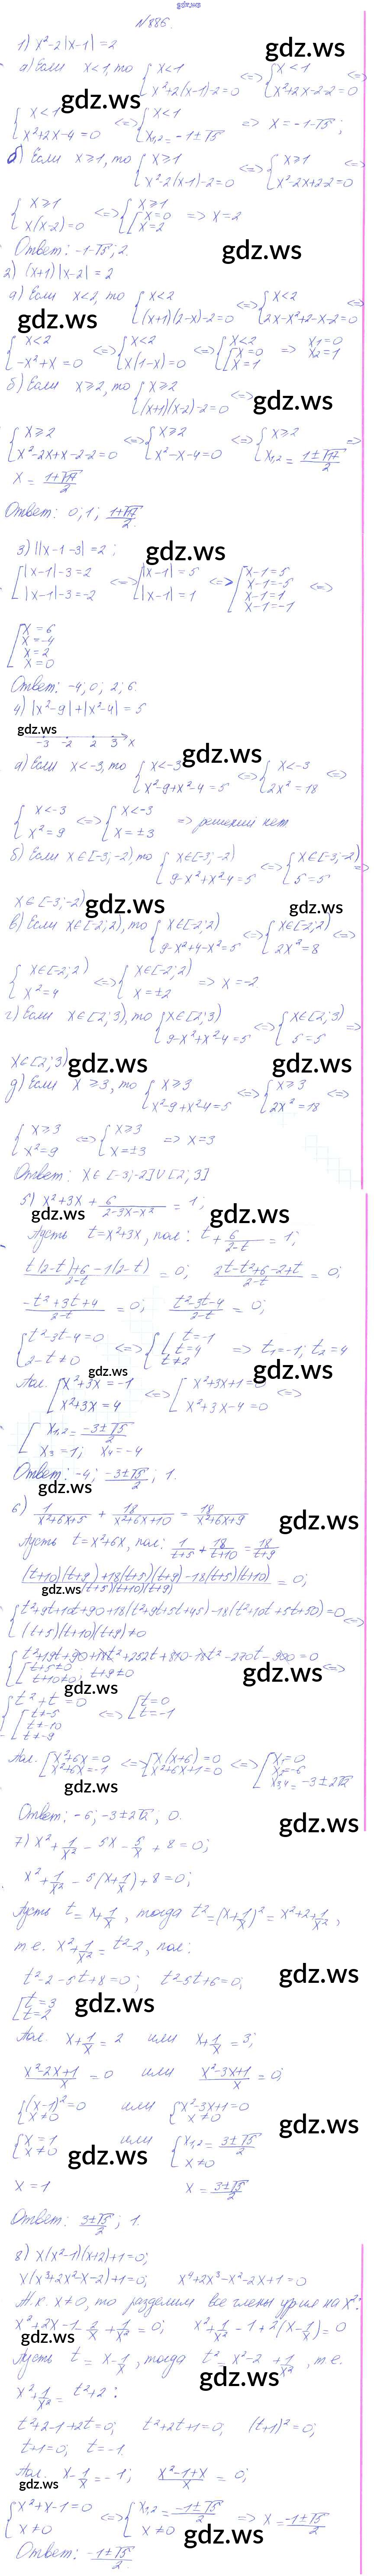 gdz.ws
№ 886.
1) x²-2|x-1|=2
а) Если x<1, то { x<1 ; x²+2(x-1)-2=0 <=> { x<1 ; x²+2x-2-2=0 <=>
{ x<1 ; x²+2x-4=0 <=> { x<1 ; x₁,₂=-1±√5 => x=-1-√5;
б) Если x≥1, то { x≥1 ; x²-2(x-1)-2=0 <=> { x≥1 ; x²-2x+2-2=0 <=>
{ x≥1 ; x(x-2)=0 <=> { x≥1 ; [ x=0 ; x=2 => x=2
Ответ: -1-√5; 2.
2) (x+1)|x-2|=2
а) Если x<2, то { x<2 ; (x+1)(2-x)-2=0 <=> { x<2 ; 2x-x²+2-x-2=0 <=>
{ x<2 ; -x²+x=0 <=> { x<2 ; x(1-x)=0 <=> { x<2 ; [ x=0 ; x=1 => x₁=0 x₂=1
б) Если x≥2, то { x≥2 ; (x+1)(x-2)-2=0 <=>
{ x≥2 ; x²-2x+x-2-2=0 <=> { x≥2 ; x²-x-4=0 <=> { x≥2 ; x₁,₂=(1±√17)/2 =>
x=(1+√17)/2
Ответ: 0; 1; (1+√17)/2.
3) ||x-1-3|=2;
[ |x-1|-3=2 ; |x-1|-3=-2 <=> [ |x-1|=5 ; |x-1|=1 <=> [ x-1=5 ; x-1=-5 ; x-1=1 ; x-1=-1 <=>
[ x=6 ; x=-4 ; x=2 ; x=0
Ответ: -4; 0; 2; 6.
4) |x²-9|+|x²-4|=5
-3 -2 2 3 x
а) Если x<-3, то { x<-3 ; x²-9+x²-4=5 <=> { x<-3 ; 2x²=18 <=>
{ x<-3 ; x²=9 <=> { x<-3 ; x=±3 => решений нет
б) Если x∈[-3;-2), то { x∈[-3;-2) ; 9-x²+x²-4=5 <=> { x∈[-3;-2) ; 5=5 =>
x∈[-3;-2)
в) Если x∈[-2;2), то { x∈[-2;2) ; 9-x²+4-x²=5 <=> { x∈[-2;2) ; 2x²=8 <=>
{ x∈[-2;2) ; x²=4 <=> { x∈[-2;2) ; x=±2 => x=-2
г) Если x∈[2;3), то { x∈[2;3) ; 9-x²+x²-4=5 <=> { x∈[2;3) ; 5=5 =>
x∈[2;3)
д) Если x≥3, то { x≥3 ; x²-9+x²-4=5 <=> { x≥3 ; 2x²=18 <=>
{ x≥3 ; x²=9 <=> { x≥3 ; x=±3 => x=3
Ответ: x∈[-3;-2]∪[2;3]
5) x²+3x+6/(2-3x-x²)=1;
Пусть t=x²+3x, пол: t+6/(2-t)=1;
(t(2-t)+6-1(2-t))/(2-t)=0; (2t-t²+6-2+t)/(2-t)=0;
(-t²+3t+4)/(2-t)=0; (t²-3t-4)/(2-t)=0;
{ t²-3t-4=0 ; 2-t≠0 <=> { [ t=-1 ; t=4 ; t≠2 => t₁=-1; t₂=4
Пол. [ x²+3x=-1 ; x²+3x=4 <=> [ x²+3x+1=0 ; x²+3x-4=0 <=>
[ x₁,₂=(-3±√5)/2 ; x₃=1; x₄=-4
Ответ: -4; (-3±√5)/2; 1.
6) 1/(x²+6x+5)+18/(x²+6x+10)=18/(x²+6x+9)
Пусть t=x²+6x, пол: 1/(t+5)+18/(t+10)=18/(t+9)
((t+10)(t+9)+18(t+5)(t+9)-18(t+5)(t+10))/((t+5)(t+10)(t+9))=0;
{ t²+9t+10t+90+18(t²+9t+5t+45)-18(t²+10t+5t+50)=0 ; (t+5)(t+10)(t+9)≠0 <=>
{ t²+19t+90+18t²+252t+810-18t²-270t-900=0 ; [ t+5≠0 ; t+10≠0; t+9≠0 <=>
{ t²+t=0 ; [ t≠-5 ; t≠-10 ; t≠-9 <=> [ t=0 ; t=-1
Пол. [ x²+6x=0 ; x²+6x=-1 <=> [ x(x+6)=0 ; x²+6x+1=0 <=> [ x₁=0 ; x₂=-6 ; x₃,₄=-3±2√2
Ответ: -6; -3±2√2; 0.
7) x²+1/x²-5x-5/x+8=0;
x²+1/x²-5(x+1/x)+8=0;
Пусть t=x+1/x, тогда t²=(x+1/x)²=x²+2+1/x²,
т.е. x²+1/x²=t²-2, пол:
t²-2-5t+8=0; t²-5t+6=0;
[ t=3 ; t=2
Пол. x+1/x=2 или x+1/x=3;
(x²-2x+1)/x=0 или (x²-3x+1)/x=0;
{ (x-1)²=0 ; x≠0 или { x²-3x+1=0 ; x≠0
{ x=1 ; x≠0 или { x₁,₂=(3±√5)/2 ; x≠0
x=1 x=(3±√5)/2
Ответ: (3±√5)/2; 1.
8) x(x²-1)(x+2)+1=0;
x(x³+2x²-x-2)+1=0; x⁴+2x³-x²-2x+1=0
Т.к. x≠0, то разделим все члены ур-ия на x²:
x²+2x-1-2/x+1/x²=0; x²+1/x²-1+2(x-1/x)=0
Пусть t=x-1/x, тогда t²=x²-2+1/x², т.е.
x²+1/x²=t²+2:
t²+2-1+2t=0; t²+2t+1=0; (t+1)²=0;
t+1=0; t=-1.
Пол. x-1/x=-1; (x²-1+x)/x=0;
{ x²+x-1=0 ; x≠0 <=> { x₁,₂=(-1±√5)/2 ; x≠0 => x=(-1±√5)/2
Ответ: (-1±√5)/2